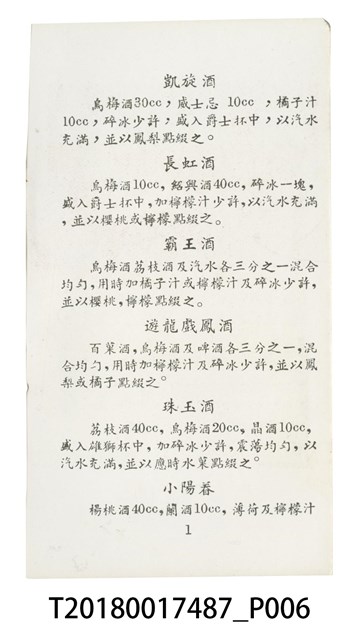 凱旋酒
烏梅酒30cc，威士忌 10cc ，橘子汁
10cc，碎冰少許，盛入爵士杯中，以汽水
充滿，並以鳳梨點綴之。
長虹酒
烏梅酒10cc，紹興酒40cc，碎冰一塊，
盛入爵士杯中，加檸檬汁少許，以汽水充滿
，並以櫻桃或檸檬點綴之。
霸王酒
烏梅酒荔枝酒及汽水各三分之一混合
均勻，用時加橘子汁或檸檬汁及碎冰少許，
並以櫻桃，檸檬點綴之。
遊龍戲鳳酒
百菓酒，烏梅酒及啤酒各三分之一，混
合均勻，用時加檸檬汁及碎冰少許，並以鳳
梨或橘子點綴之。
珠玉酒
荔枝酒40cc，烏梅酒20cc，晶酒10cc，
盛入雄獅杯中，加碎冰少許，震蕩均勻，以
汽水充滿，並以應時水菓點綴之。
小陽春
楊桃酒40cc，蘭酒10cc，薄荷及檸檬汁
1
T20180017487_P006